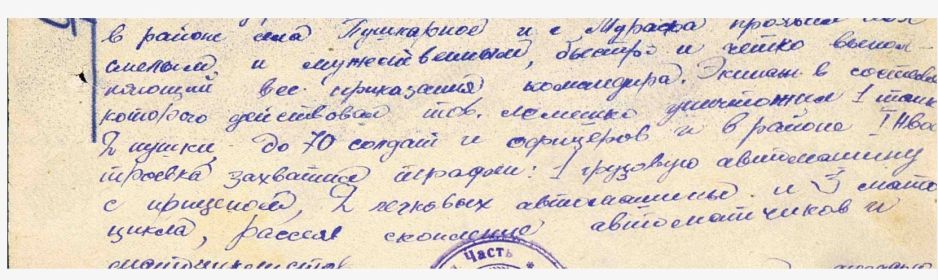 в районе села Пушкарное и с. Мурафа проявил
смелым и мужественным, быстро и четко выпол-
няющий все приказания командира. Экипаж в составе
которого действовал тов. Лемешко уничтожил 1 танк
2 пушки, до 70 солдат и офицеров и в районе
тровка захватил трафеи: 1 грузовую автомашину
с прицепом, 2 легковых автомашины и 3 мото
цикла, рассеял скопление автоматчиков и
мотоциклистов
Часть